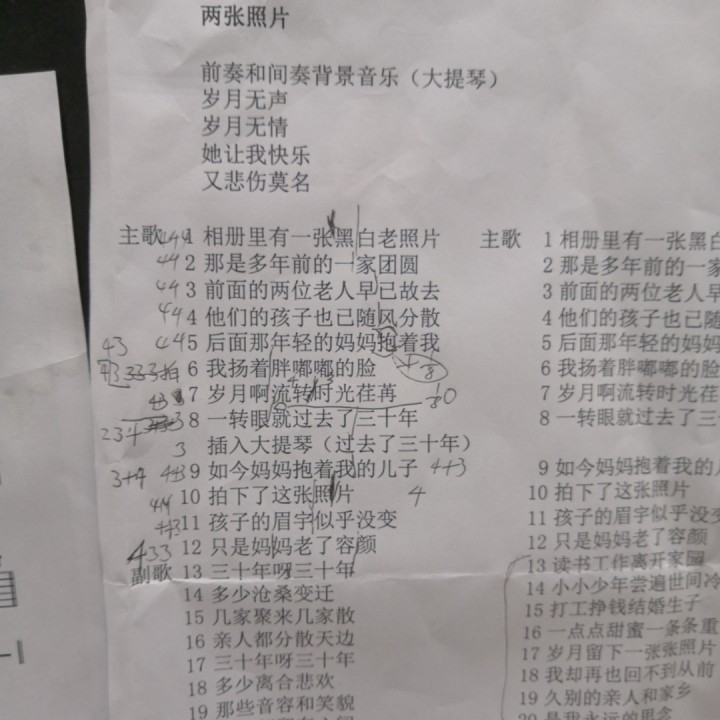 两张照片
前奏和间奏背景音乐（大提琴）
岁月无声
岁月无情
她让我快乐
又悲伤莫名
主歌 1 相册里有一张黑白老照片
44 2 那是多年前的一家团圆
44 3 前面的两位老人早已故去
44 4 他们的孩子也已随风分散
445 后面那年轻的妈妈抱着我
43
333拍 6 我扬着胖嘟嘟的脸
7 岁月啊流转时光荏苒
8 一转眼就过去了三十年
234
3 插入大提琴（过去了三十年）
3+4 443 9 如今妈妈抱着我的儿子 4+3
44 10 拍下了这张照片 4
11 孩子的眉宇似乎没变
433 12 只是妈妈老了容颜
副歌 13 三十年呀三十年
14 多少沧桑变迁
15 几家聚来几家散
16 亲人都分散天边
17 三十年呀三十年
18 多少离合悲欢
19 那些音容和笑貌
主歌 1 相册里有一张黑白
2 那是多年前的一家
3 前面的两位老人早
4 他们的孩子也已随
5 后面那年轻的妈妈
6 我扬着胖嘟嘟的脸
7 岁月啊流转时光荏
8 一转眼就过去了三
9 如今妈妈抱着我的
10 拍下了这张照片
11 孩子的眉宇似乎没变
12 只是妈妈老了容颜
13 读书工作离开家园
14 小小少年尝遍世间冷
15 打工挣钱结婚生子
16 一点点甜蜜一条条重
17 岁月留下一张张照片
18 我却再也回不到从前
19 久别的亲人和家乡
20 是我永远的思念